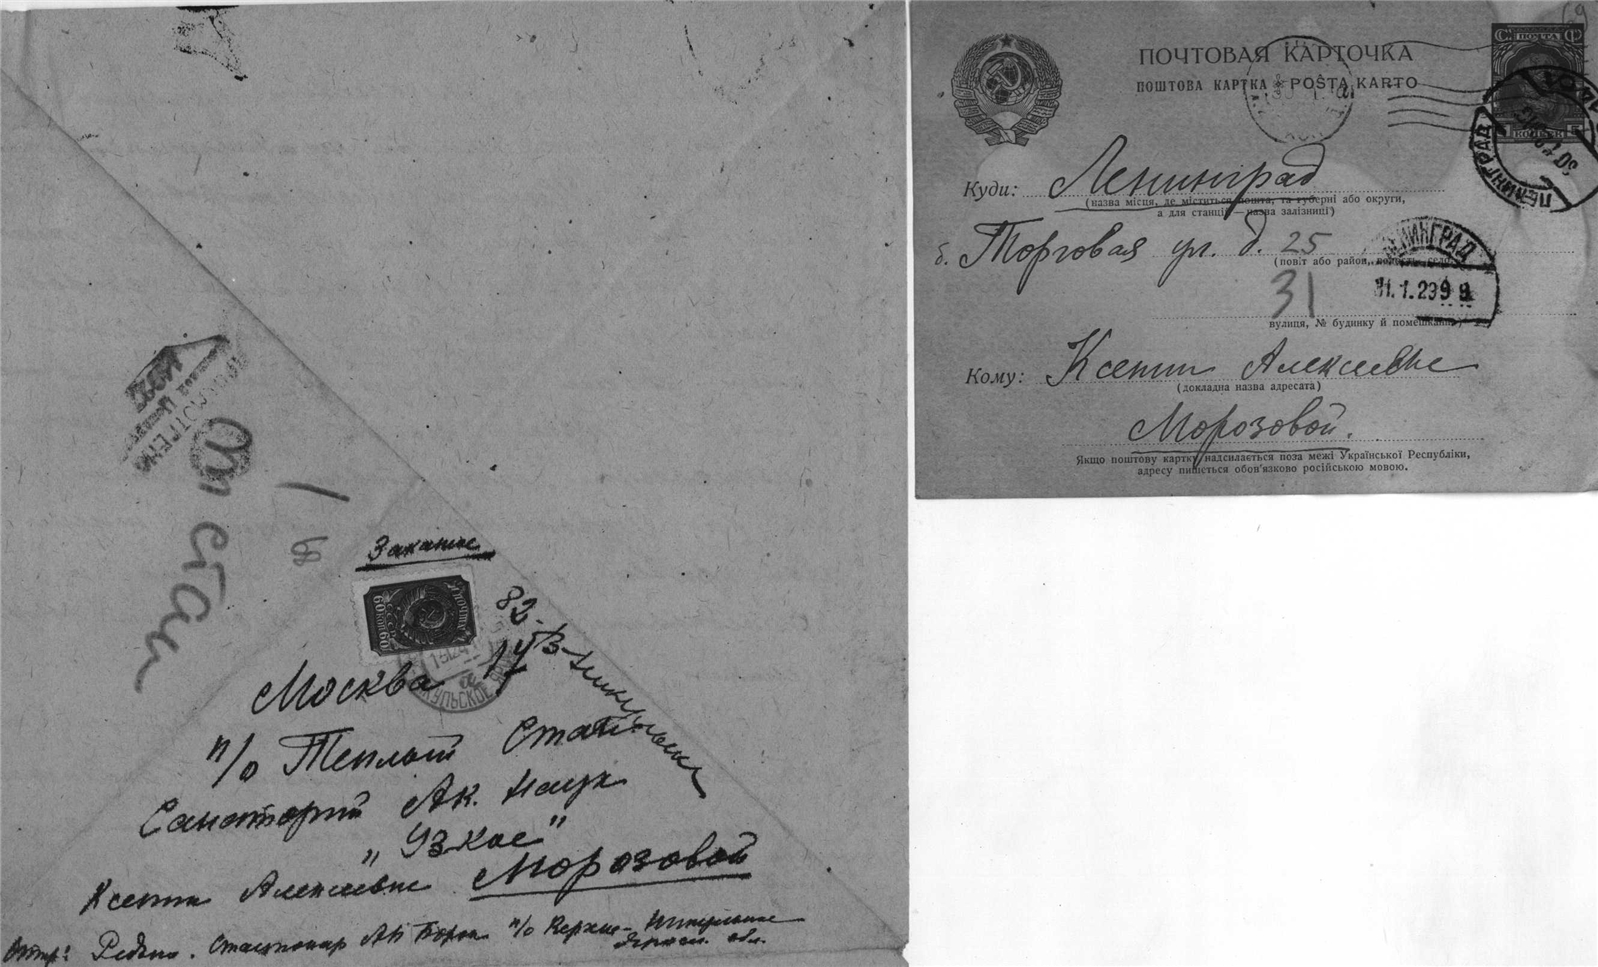 Заказное
82
Москва
п/о Теплый Стан
Санаторий Ак. Наук
„Узкое"
Ксении Алексеевне Морозовой
Стационар АН Борок п/о
обл.
Стан
ПРОСМОТРЕНО
60 коп 60
ПОЧТА
СССР
ПОЧТОВАЯ КАРТОЧКА
ПОШТОВА КАРТКА POŜTA KARTO
ПОЧТА
КОПЕЕК
ЛЕНИНГРАД
Куди: Ленинград
(назва місця, де міститься пошта, та губерні або округи,
а для станції—назва залізниці)
б. Торговая ул. д. 25
(повіт або район,
31
ЛЕНИНГРАД
31.1.29 9
вулиця, № будинку й помешкання)
Кому: Ксении Алексеевне
(докладна назва адресата)
Морозовой.
Якщо поштову картку надсилається поза межі Української Республіки,
адресу пишеться обов'язково російською мовою.